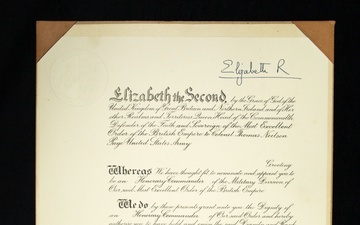 Elizabeth R
Elizabeth the Second, by the Grace of God of the
United Kingdom of Great Britain and Northern Ireland and of Her
other Realms and Territories Queen, Head of the Commonwealth,
Defender of the Faith and Sovereign of the Most Excellent
Order of the British Empire to Colonel Thomas Neelson
Page United States Army
Greeting
Whereas We have thought fit to nominate and appoint you to
be an Honorary Commander of the Military Division of
Our said Most Excellent Order of the British Empire
We do by these presents grant unto you the Dignity of
an Honorary Commander of Our said Order and hereby
authorise you to have hold and enjoy the said Dignity and Rank